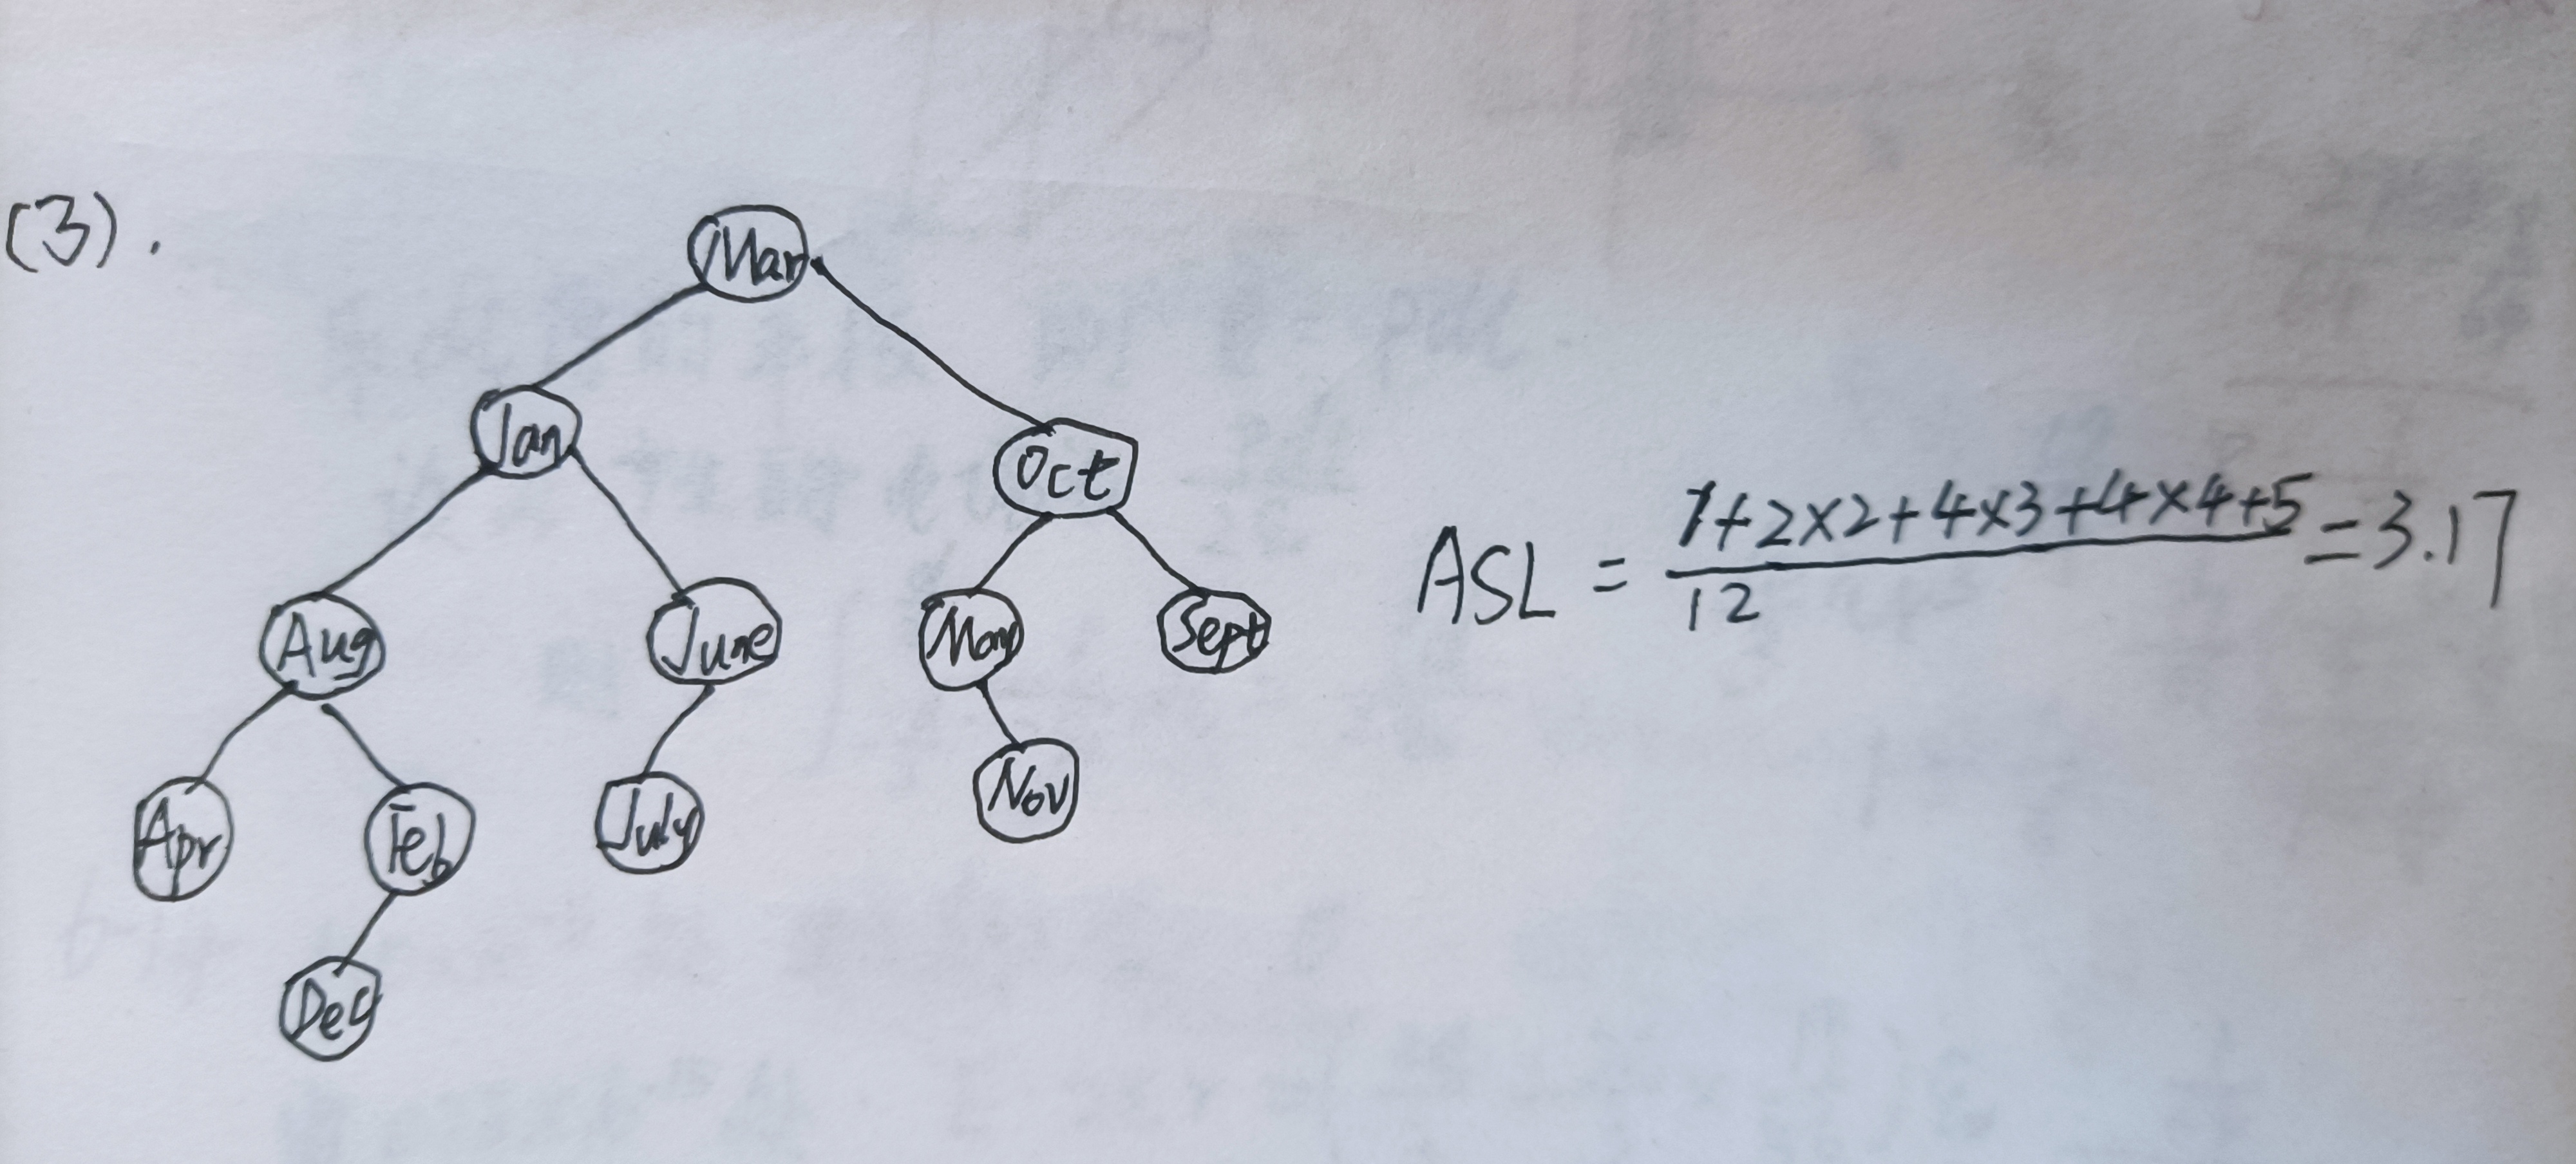 (3).
Mar
Jan
Oct
Aug
June
May
Sept
Apr
Feb
July
Nov
Dec
ASL = 1+2×2+4×3+4×4+5 / 12 = 3.17